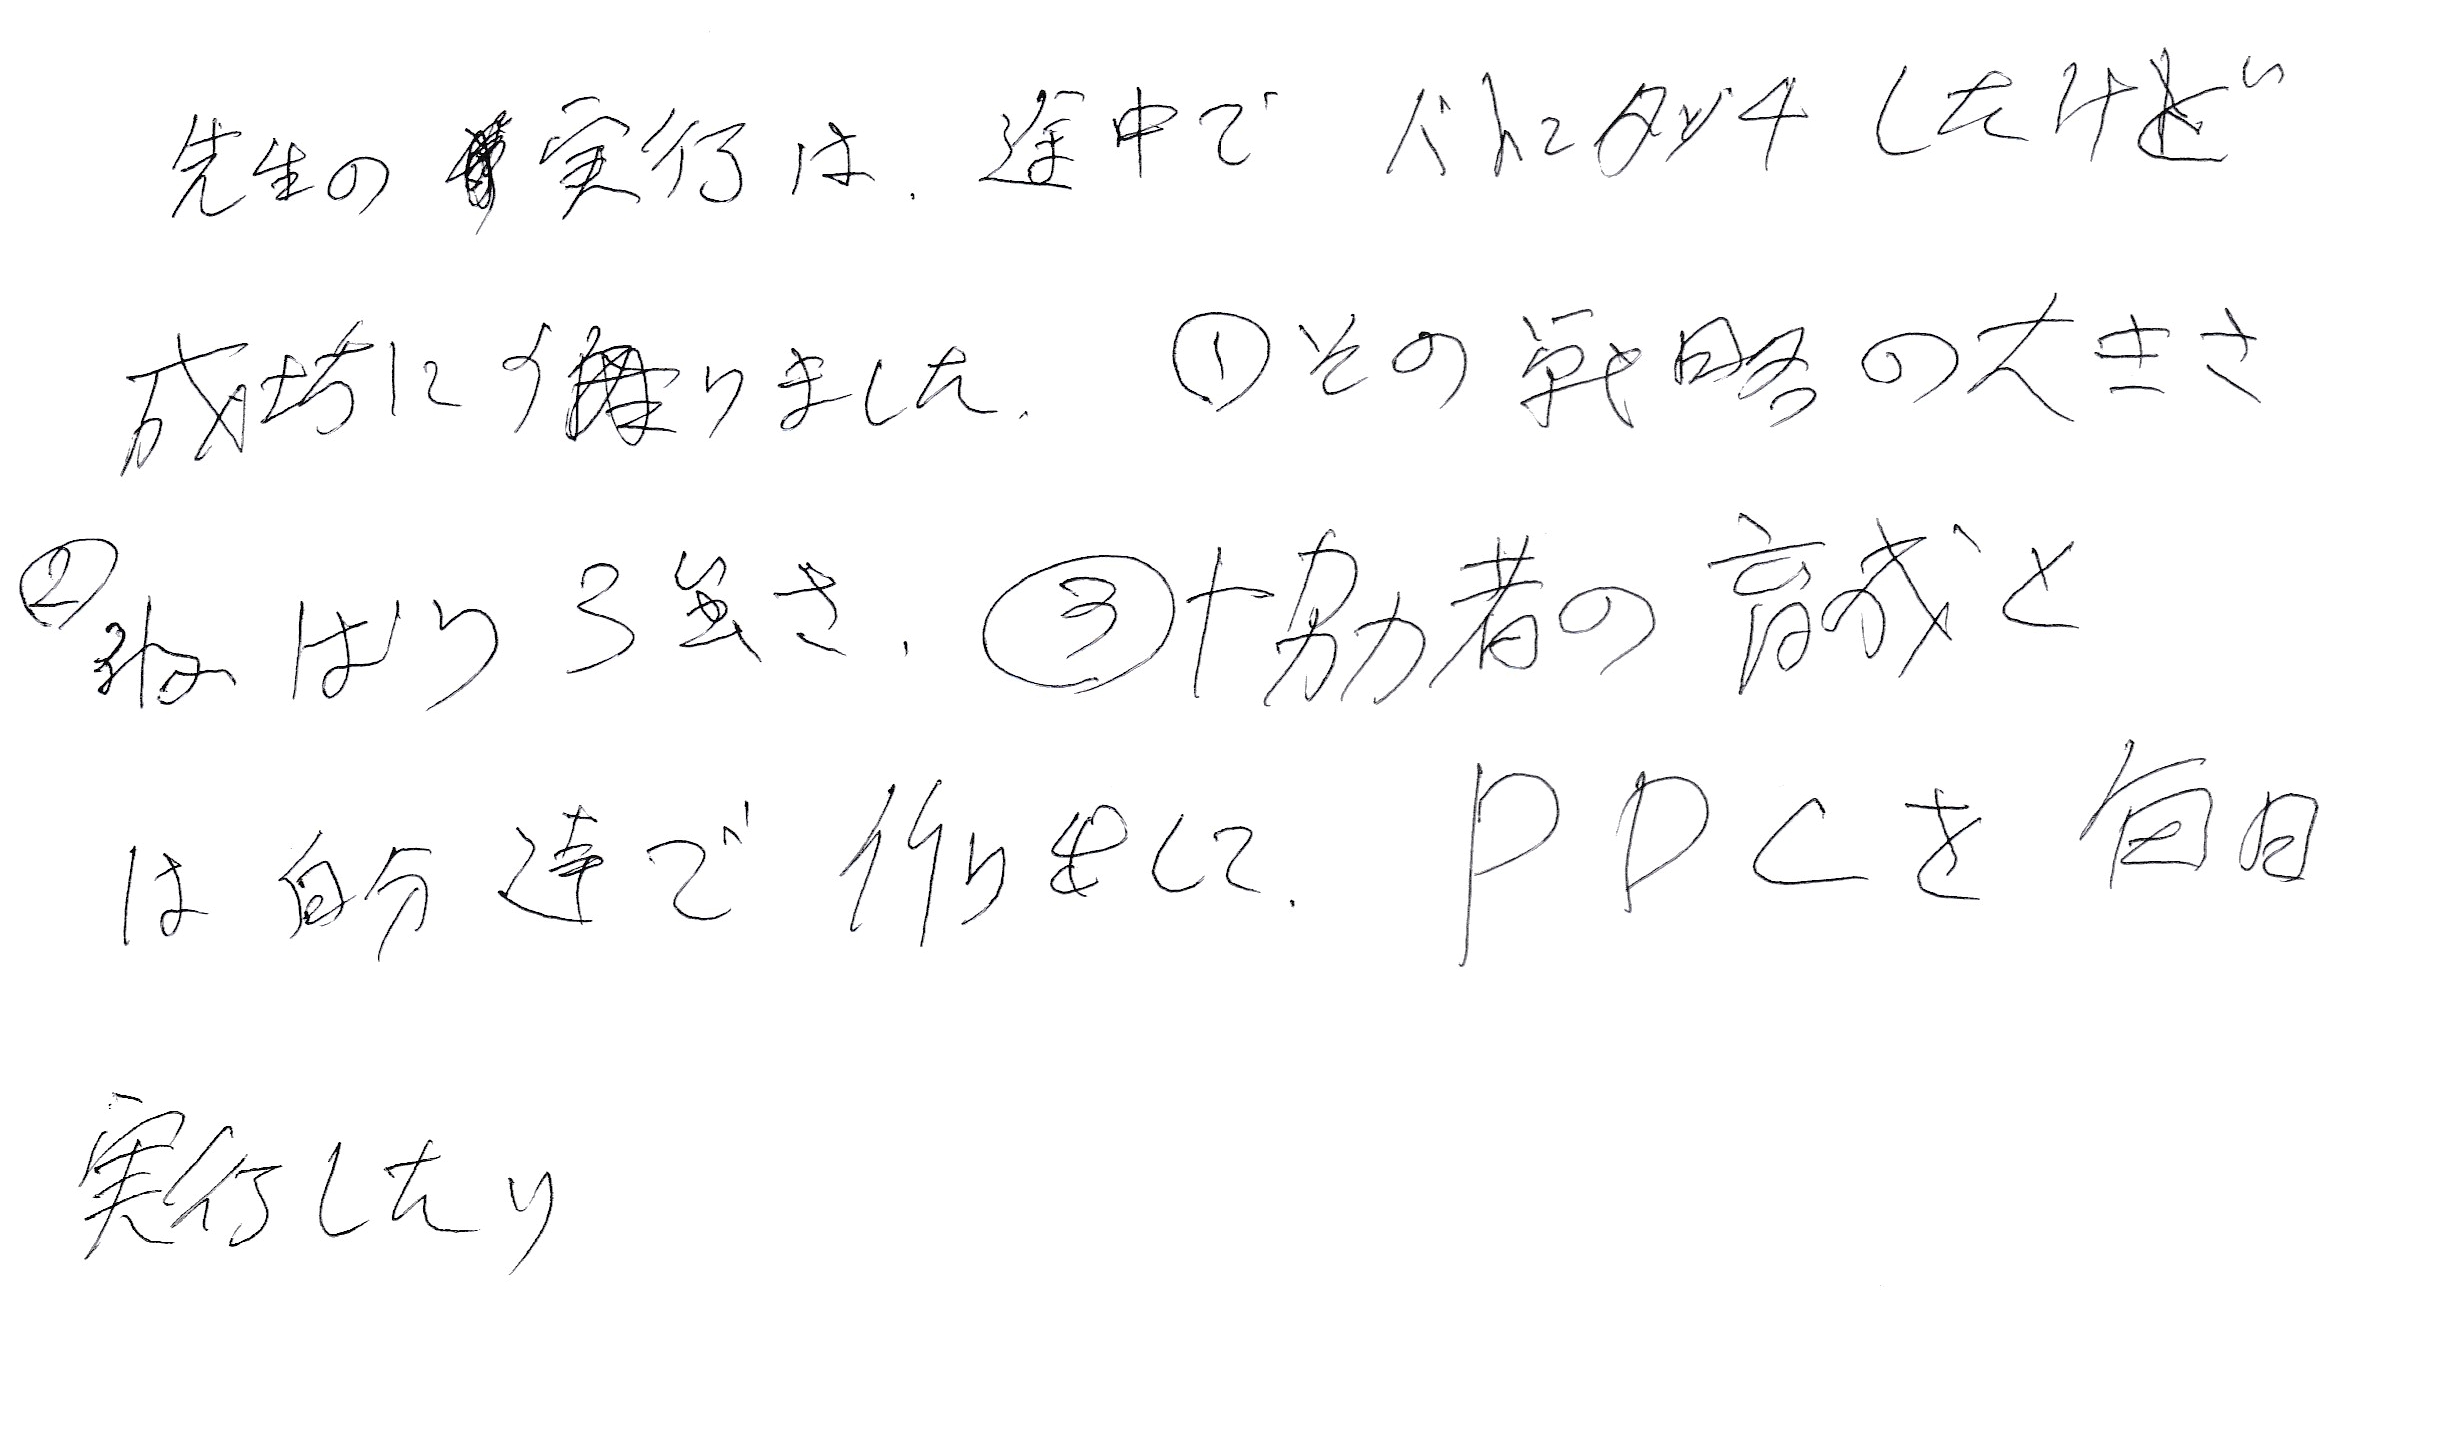 先生の実行は、途中でバトンタッチしたけど
成功に終りました. ①その戦略の大きさ
②ねばり強さ、③協力者の育成と
は自分達で作り出して、PDCを毎日
実行したり